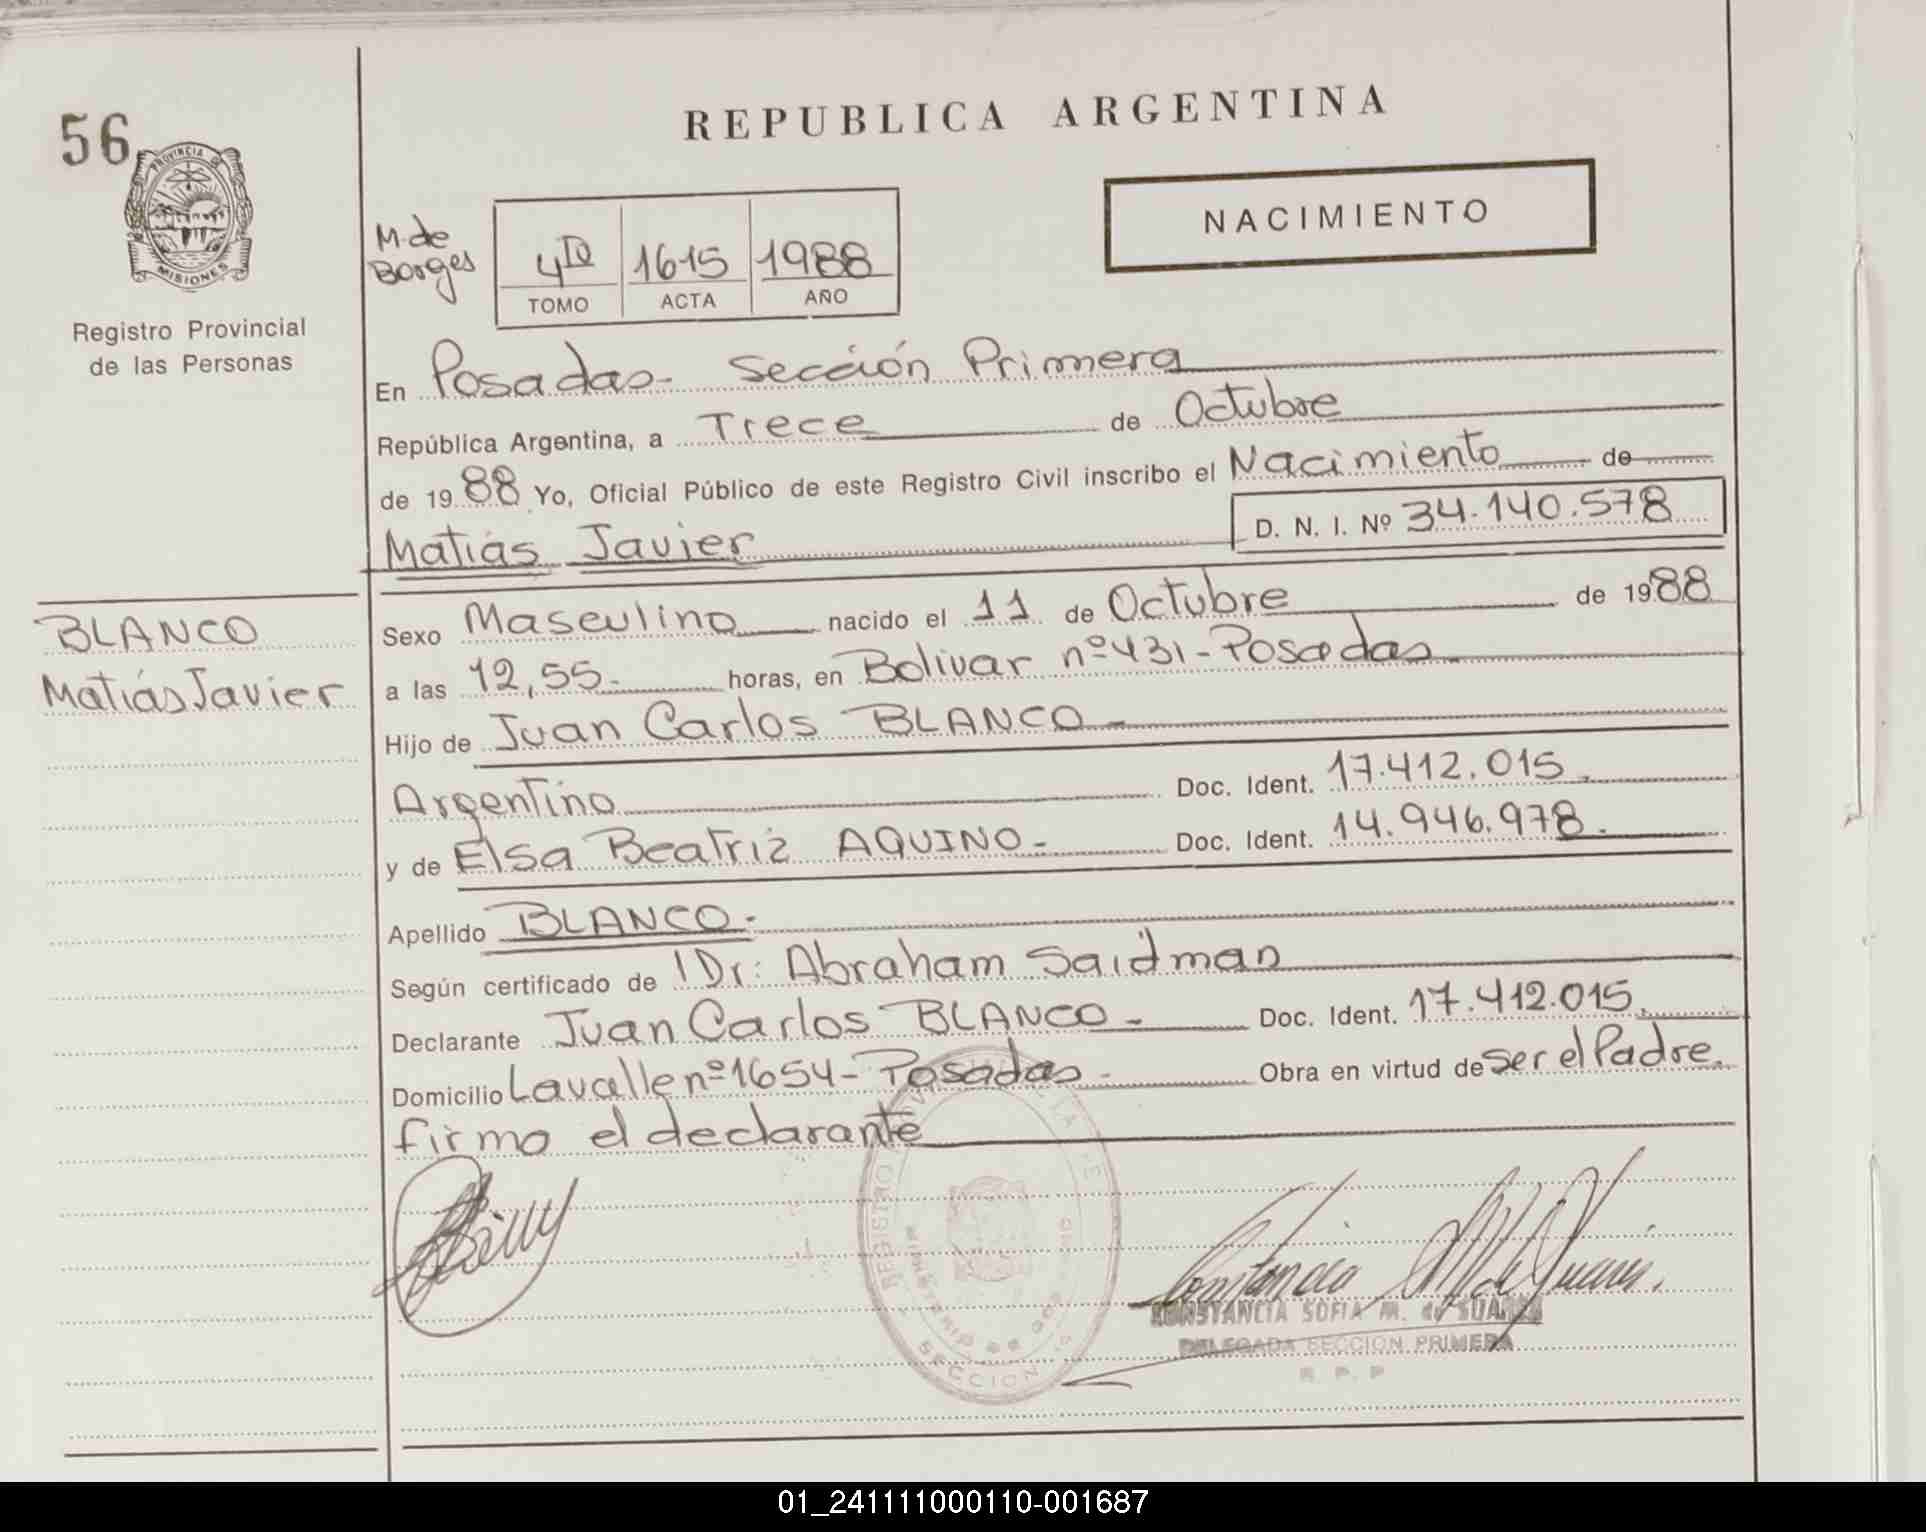 56
REPUBLICA ARGENTINA
PROVINCIA DE
MISIONES
Registro Provincial
de las Personas
M. de
Borges
4to 1615 1988
TOMO ACTA AÑO
NACIMIENTO
En Posadas- Sección Primera
República Argentina, a Trece de Octubre
de 1988 Yo, Oficial Público de este Registro Civil inscribo el Nacimiento de
Matías Javier D. N. I. Nº 34.140.578
BLANCO
Matiás Javier
Sexo Masculino nacido el 11 de Octubre de 1988
a las 12,55.- horas, en Bolivar nº 431-Posadas
Hijo de Juan Carlos BLANCO-
Argentino Doc. Ident. 17.412.015.
y de Elsa Beatriz AQUINO- Doc. Ident. 14.946.978.
Apellido BLANCO-
Según certificado de Dr: Abraham Saidman
Declarante Juan Carlos BLANCO- Doc. Ident. 17.412.015.
Domicilio Lavalle nº 1654-Posadas- Obra en virtud de ser el Padre.
firmo el declarante
REGISTRO
SECCION
CONSTANCIA SOFIA M. de SUAREZ
DELEGADA SECCION PRIMERA
R. P. P
01_241111000110-001687